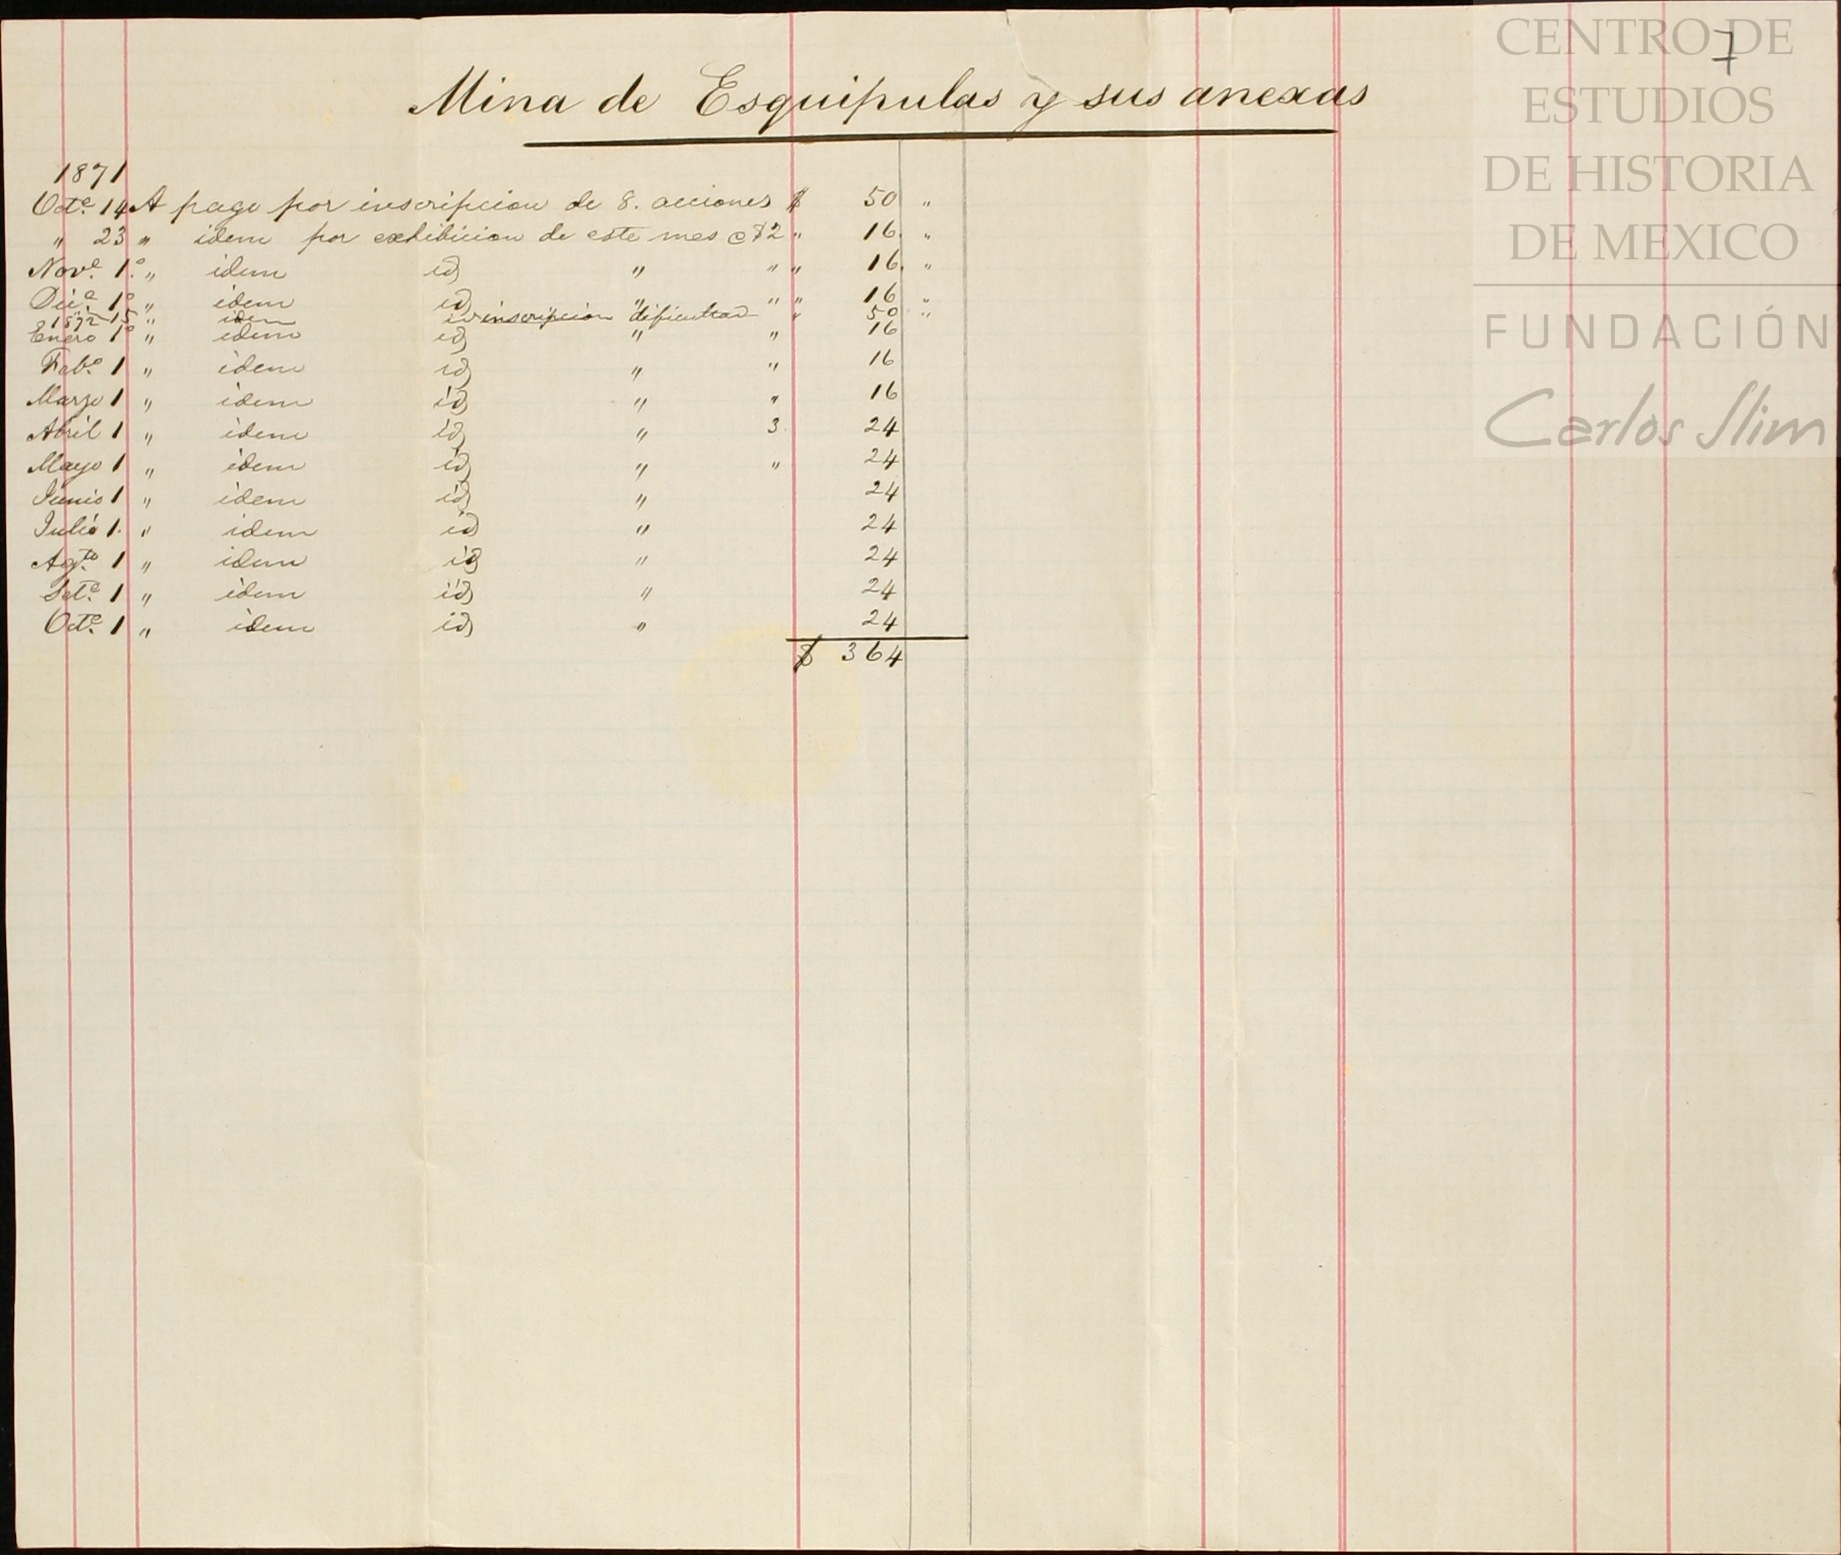 7
Mina de Esquipulas y sus anexas
1871
Octe. 14 A pago por inscripcion de 8. acciones $ 50 "
" 23 " idem por exhibicion de este mes @ $2 " 16. "
Nove. 1º " idem id " " " 16. "
Dice. 1º " idem id " " " 16 "
" 15 " idem id inscripcion dificultad " 50 "
1872
Enero 1º " idem id " " 16
Febo. 1 " idem id " " 16
Marzo 1 " idem id " " 16
Abril 1 " idem id " 3 24
Mayo 1 " idem id " " 24
Junio 1 " idem id " 24
Julio 1. " idem id " 24
Agto. 1 " idem id " 24
Sete. 1 " idem id " 24
Octe. 1 " idem id " 24
$ 364
CENTRO DE
ESTUDIOS
DE HISTORIA
DE MEXICO
FUNDACIÓN
Carlos Slim